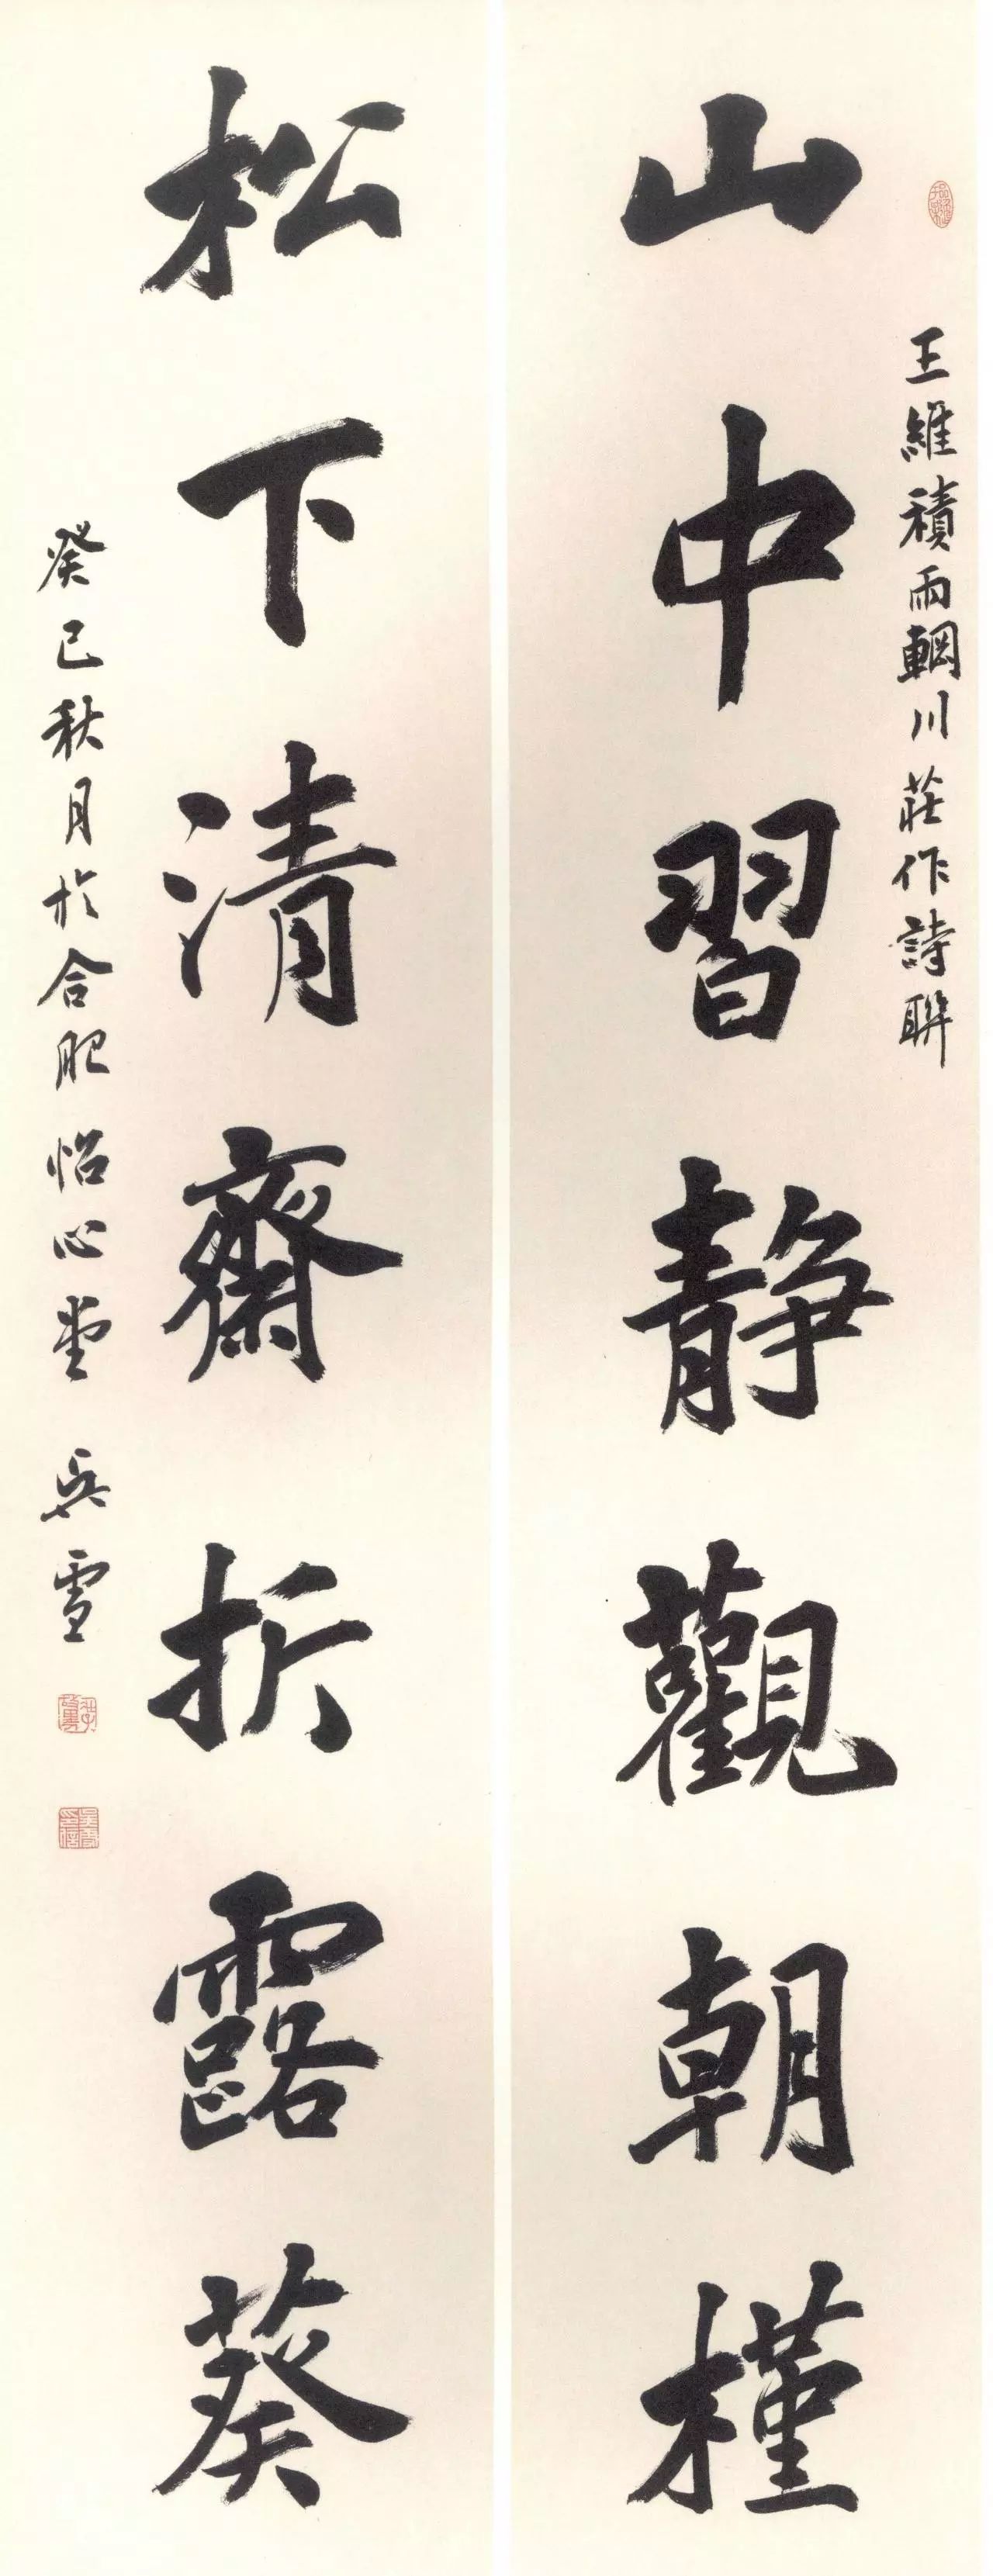 王維積雨輞川莊作詩聯
山中習静觀朝槿
松下清齋折露葵
癸巳秋月於合肥怡心堂 吳雪